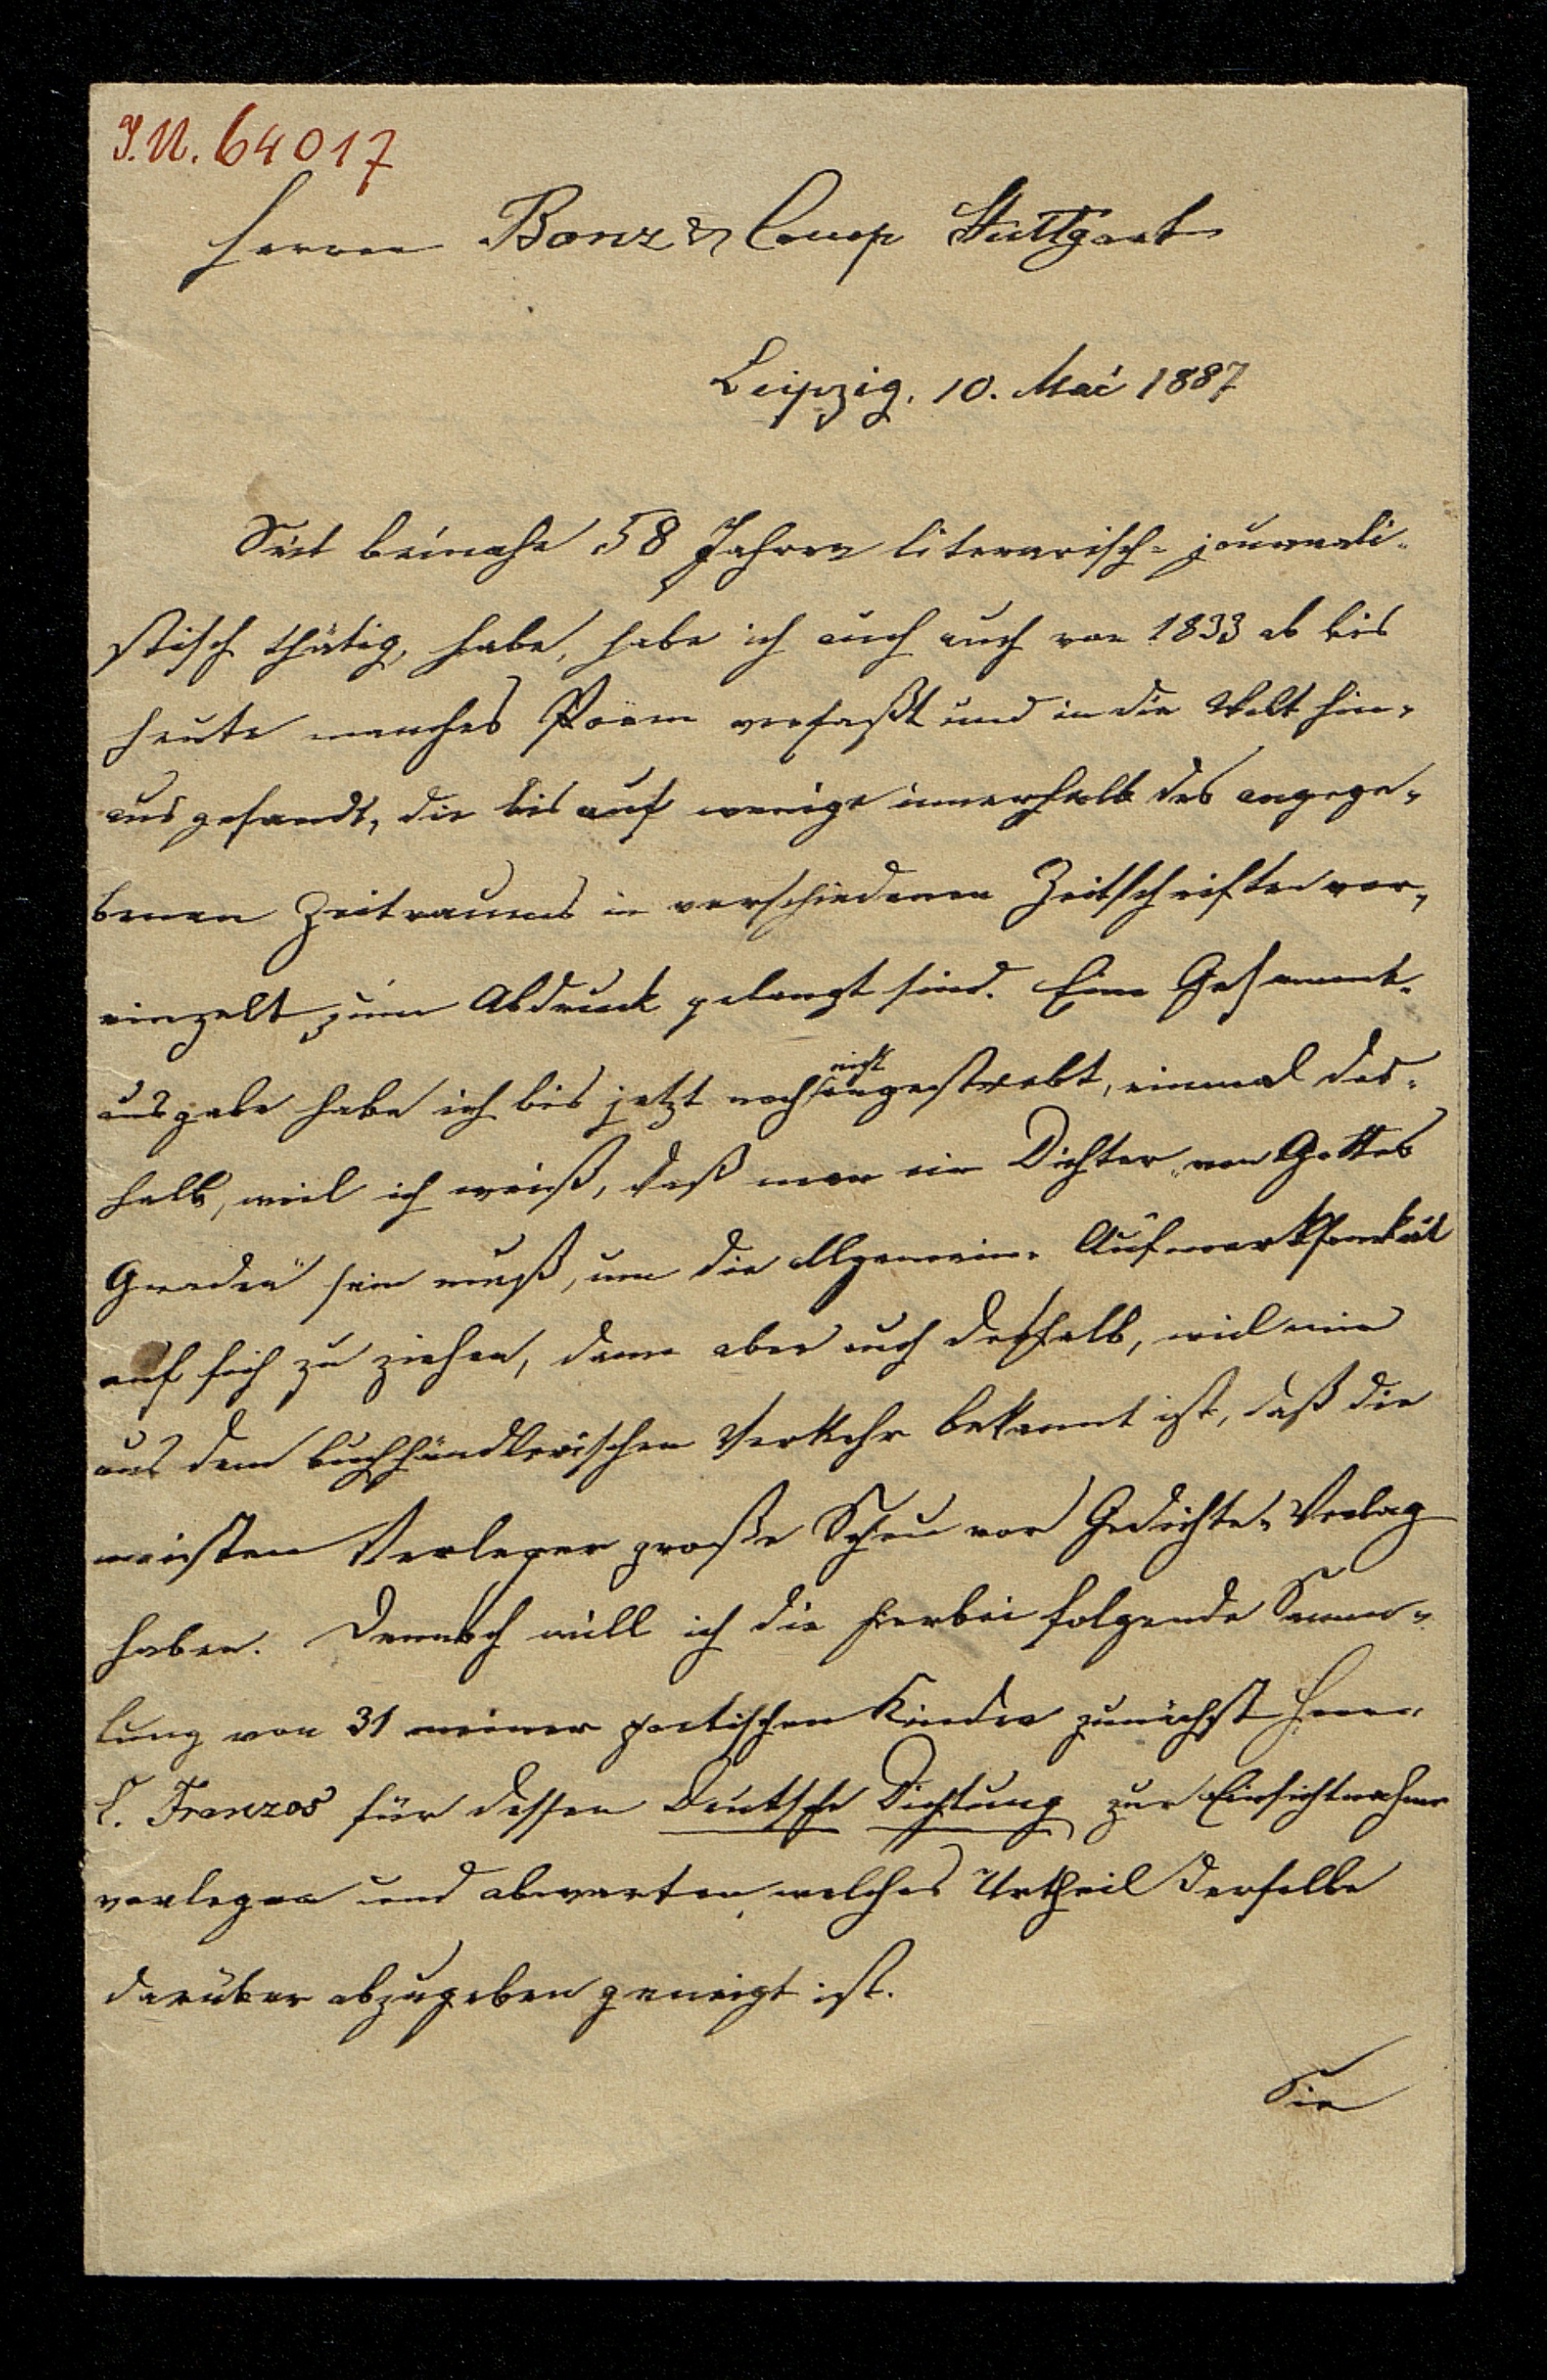 I.N. 64017
Herren Bonz & Comp Stuttgart
Leipzig, 10. Mai 1887
Seit beinahe 58 Jahren literarisch-journali-
stisch thätig, habe, habe ich auch auch von 1833 ab bis
heute manches Poëm verfaßt und in die Welt hin-
aus gesandt, die bis auf wenige innerhalb des angege-
benen Zeitraums in verschiedenen Zeitschriften ver-
einzelt zum Abdruck gelangt sind. Eine Gesammt-
ausgabe habe ich bis jetzt noch nicht angestrebt, einmal des-
halb, weil ich weiß, daß man ein Dichter „von Gottes
Gnaden" sein muß, um die allgemeine Aufmerksamkeit
auf sich zu ziehen, dann aber auch deshalb, weil mir
aus dem buchhändlerischen Verkehr bekannt ist, daß die
meisten Verleger große Scheu vor Gedichte-Verlag
haben. Dennoch will ich die hierbei folgende Samm-
lung von 31 meiner poetischen Kinder zunächst Herrn
E. Franzos für dessen Deutsche Dichtung zur Einsichtnahme
vorlegen und abwarten, welches Urtheil derselbe
darüber abzugeben geneigt ist.
Sie